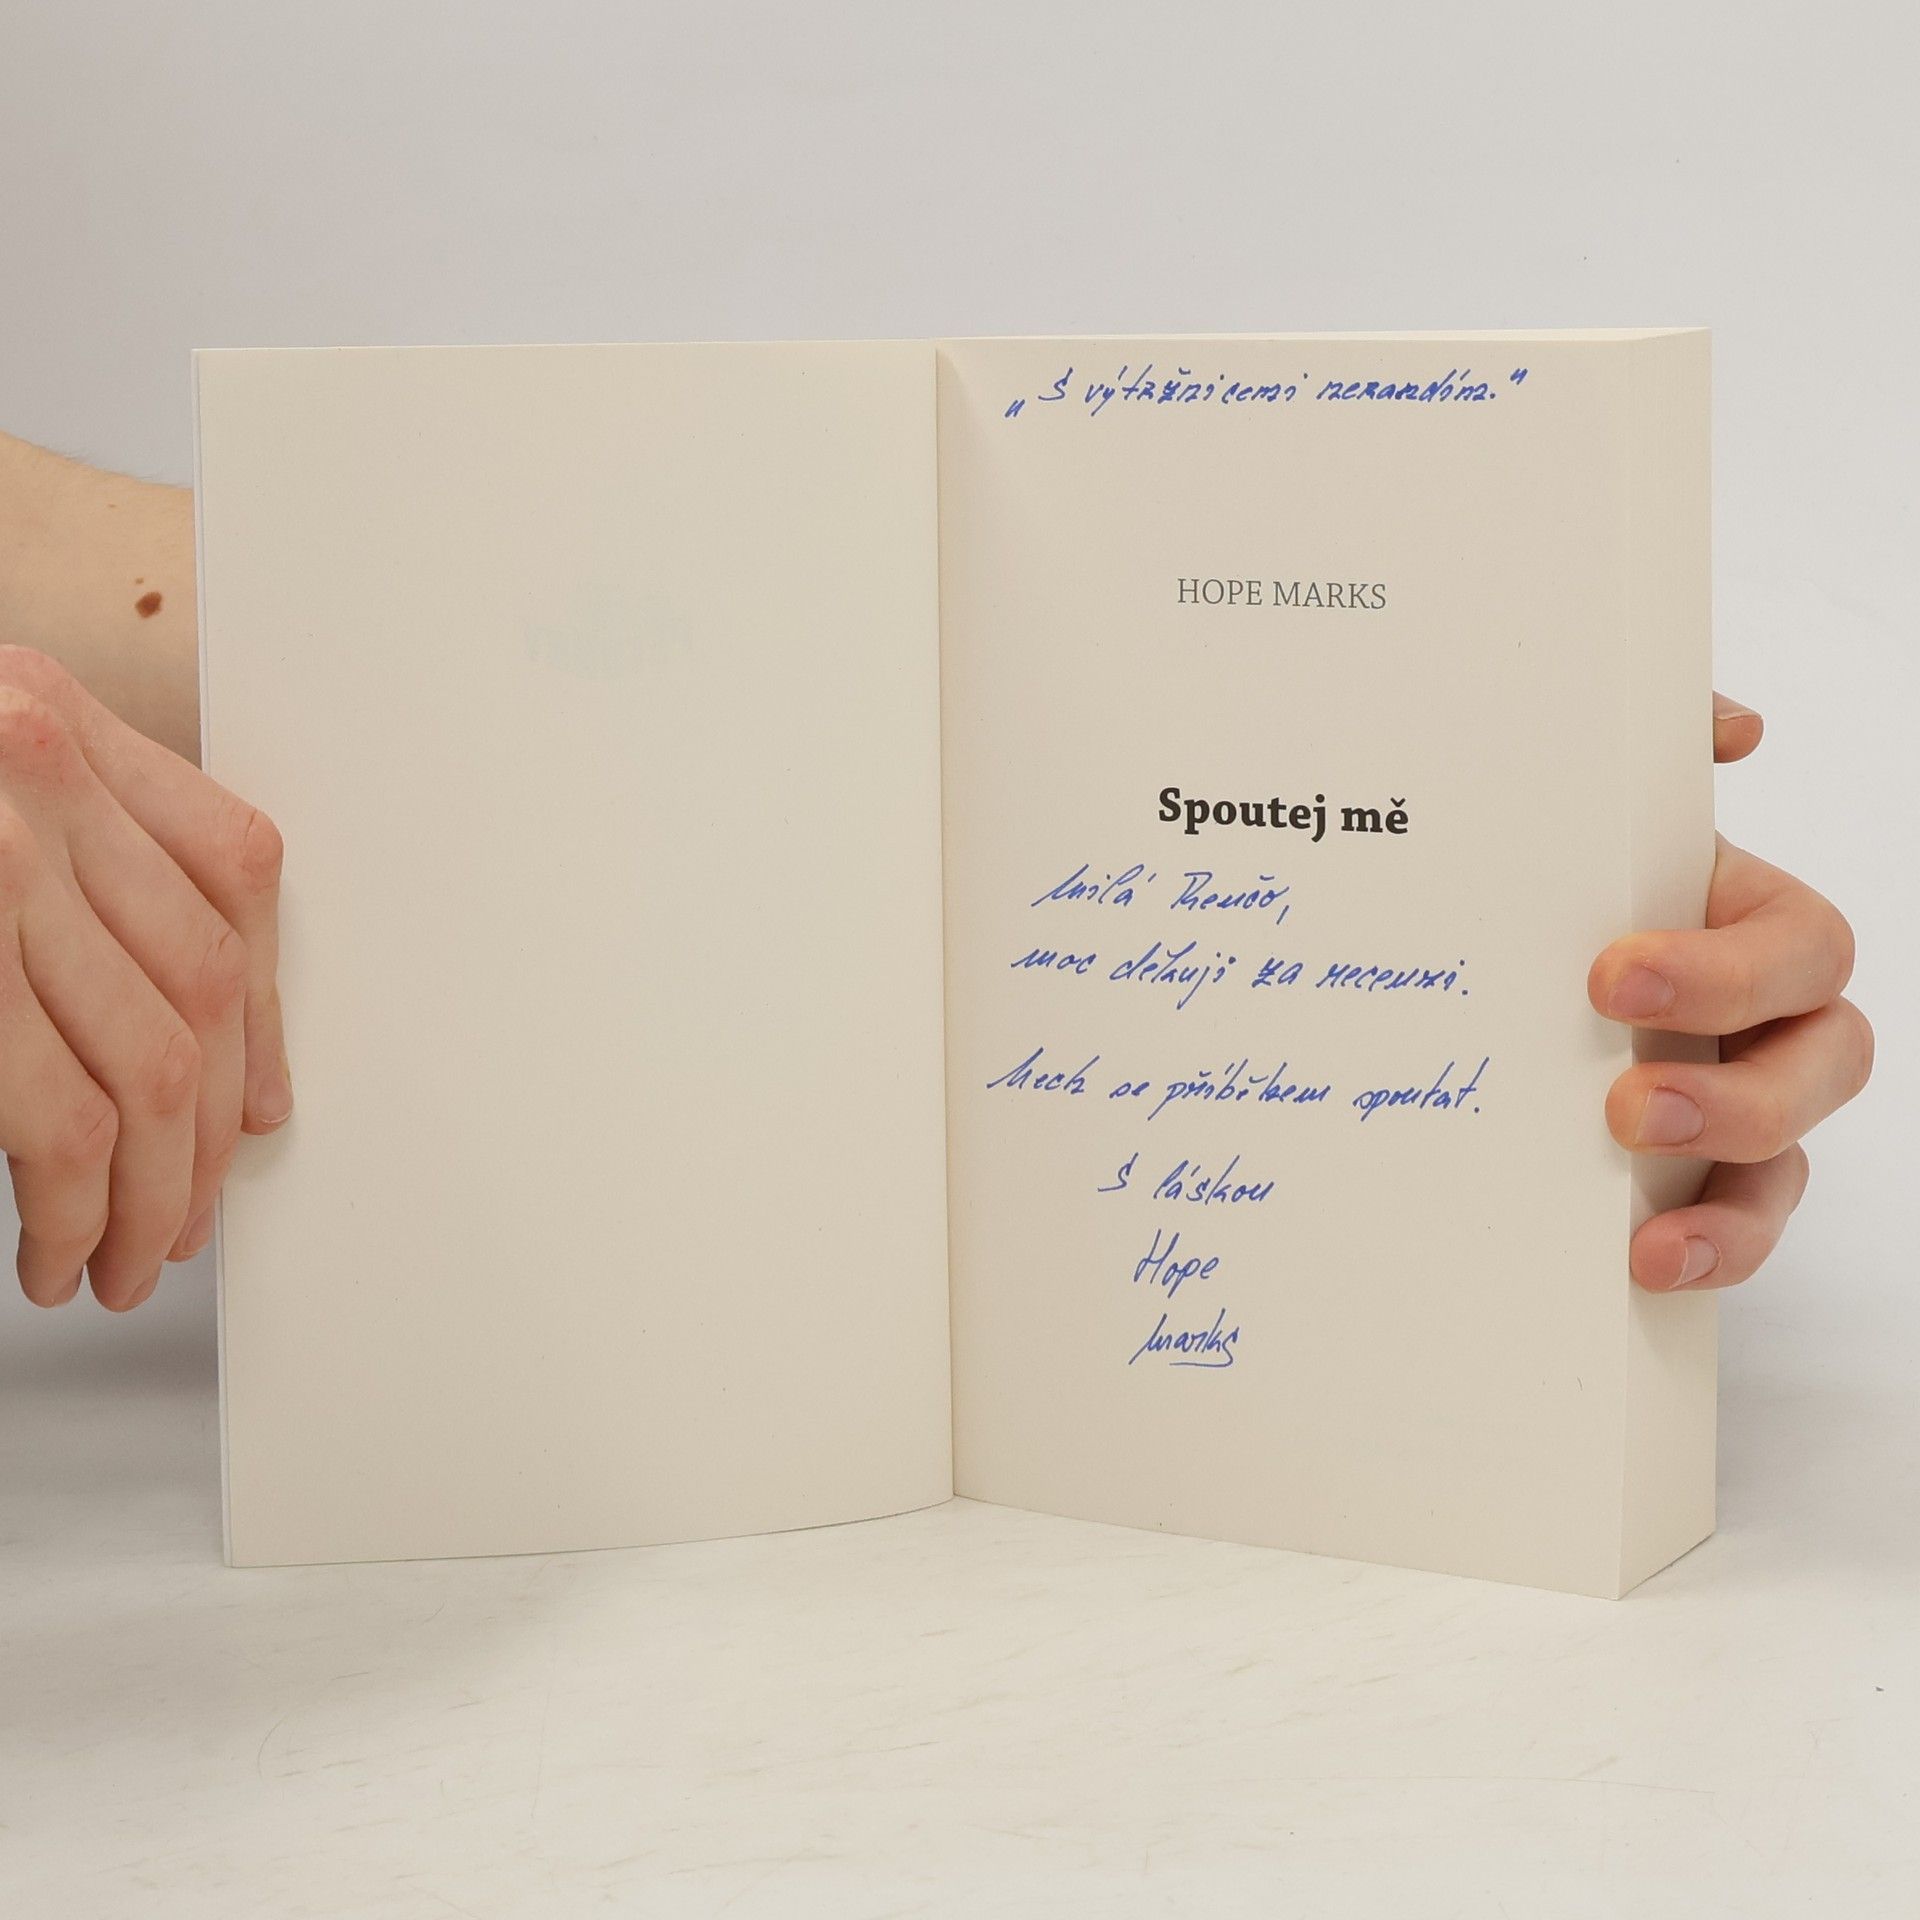 „S výtržnicemi nerandím."
HOPE MARKS
Spoutej mě
Milá Renčo,
moc děkuji za recenzi.
Nech se příběhem spoutat.
S láskou
Hope
Marks